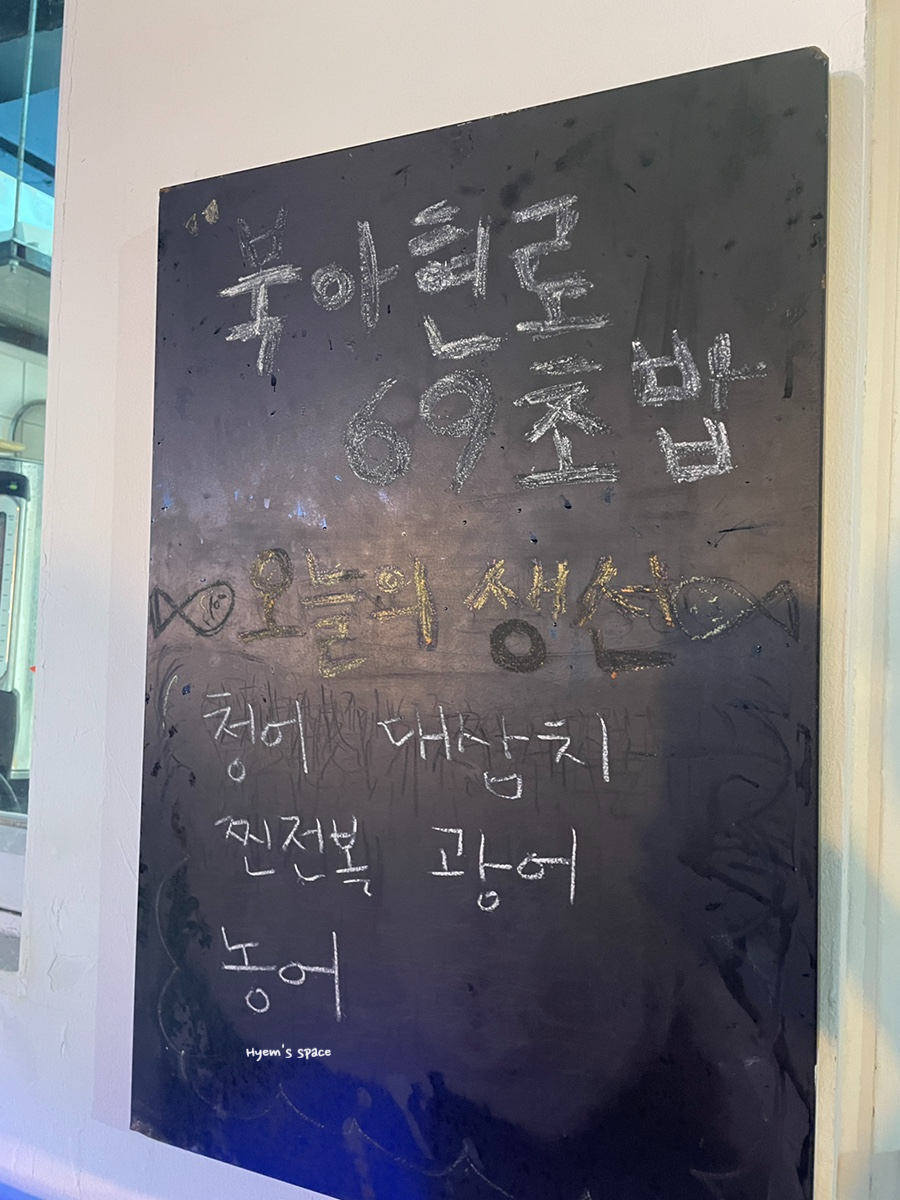 북아현로
69초밥
오늘의 생선
청어 대삼치
찐전복 광어
농어
Hyem's space